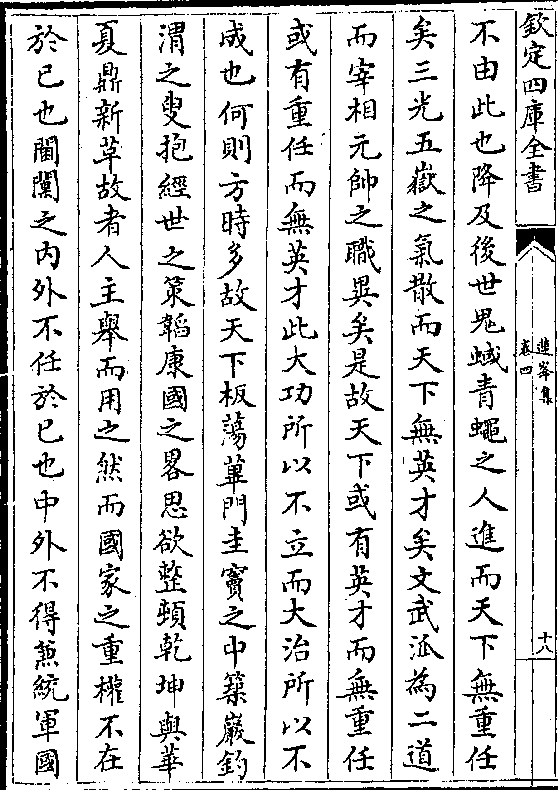 欽定四庫全書
蓮峯集
卷四
十八
不由此也降及後世鬼蜮青蠅之人進而天下無重任
矣三光五嶽之氣散而天下無英才矣文武泒為二道
而宰相元帥之職異矣是故天下或有英才而無重任
或有重任而無英才此大功所以不立而大治所以不
成也何則方時多故天下板蕩蓽門圭竇之中築巖釣
渭之叟抱經世之策韜康國之畧思欲整頓乾坤與華
夏鼎新革故者人主舉而用之然而國家之重權不在
於已也閫闑之内外不任於已也中外不得兼統軍國